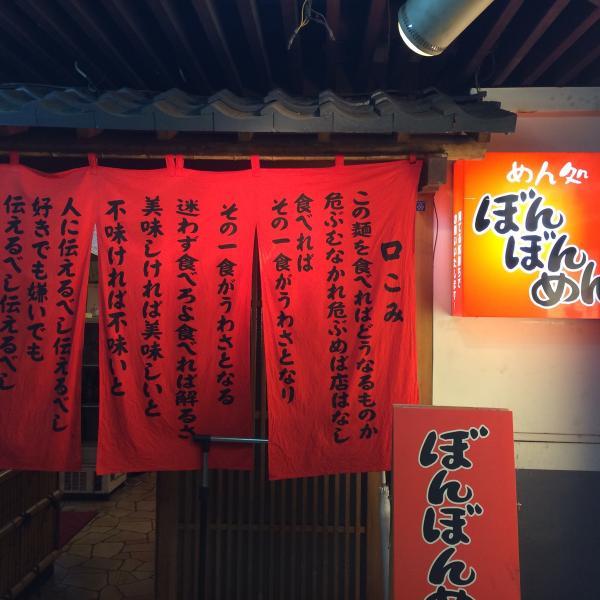 口こみ
この麺を食べればどうなるものか
危ぶむなかれ危ぶめば店はなし
食べれば
その一食がうわさとなり
その一食がうわさとなる
迷わず食べろよ食べれば解るさ
美味しければ美味しいと
不味ければ不味いと
人に伝えるべし伝えるべし
好きでも嫌いでも
伝えるべし伝えるべし
めん処
ぼん
ぼん
めん
ぼんぼんめ